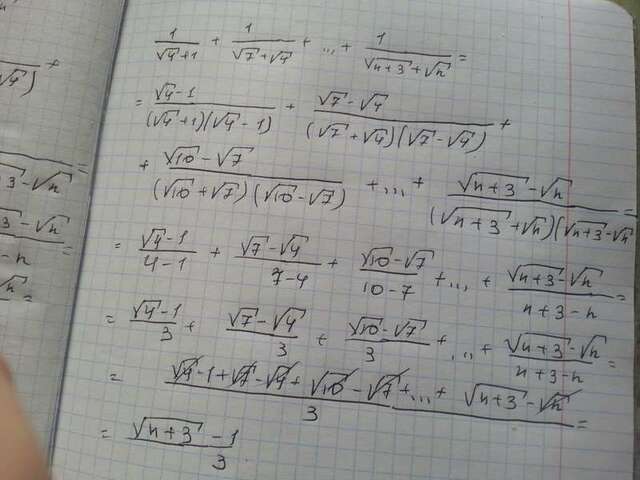 1/(√4+1) + 1/(√7+√4) + ... + 1/(√n+3+√n) =
= (√4-1)/((√4+1)(√4-1)) + (√7-√4)/((√7+√4)(√7-√4)) +
+ (√10-√7)/((√10+√7)(√10-√7)) + ... + (√n+3-√n)/((√n+3+√n)(√n+3-√n
= (√4-1)/(4-1) + (√7-√4)/(7-4) + (√10-√7)/(10-7) + ... + (√n+3-√n)/(n+3-n) =
= (√4-1)/3 + (√7-√4)/3 + (√10-√7)/3 + ... + (√n+3-√n)/(n+3-n) =
= (√4-1+√7-√4+√10-√7+...+√n+3-√n)/3 =
= (√n+3-1)/3